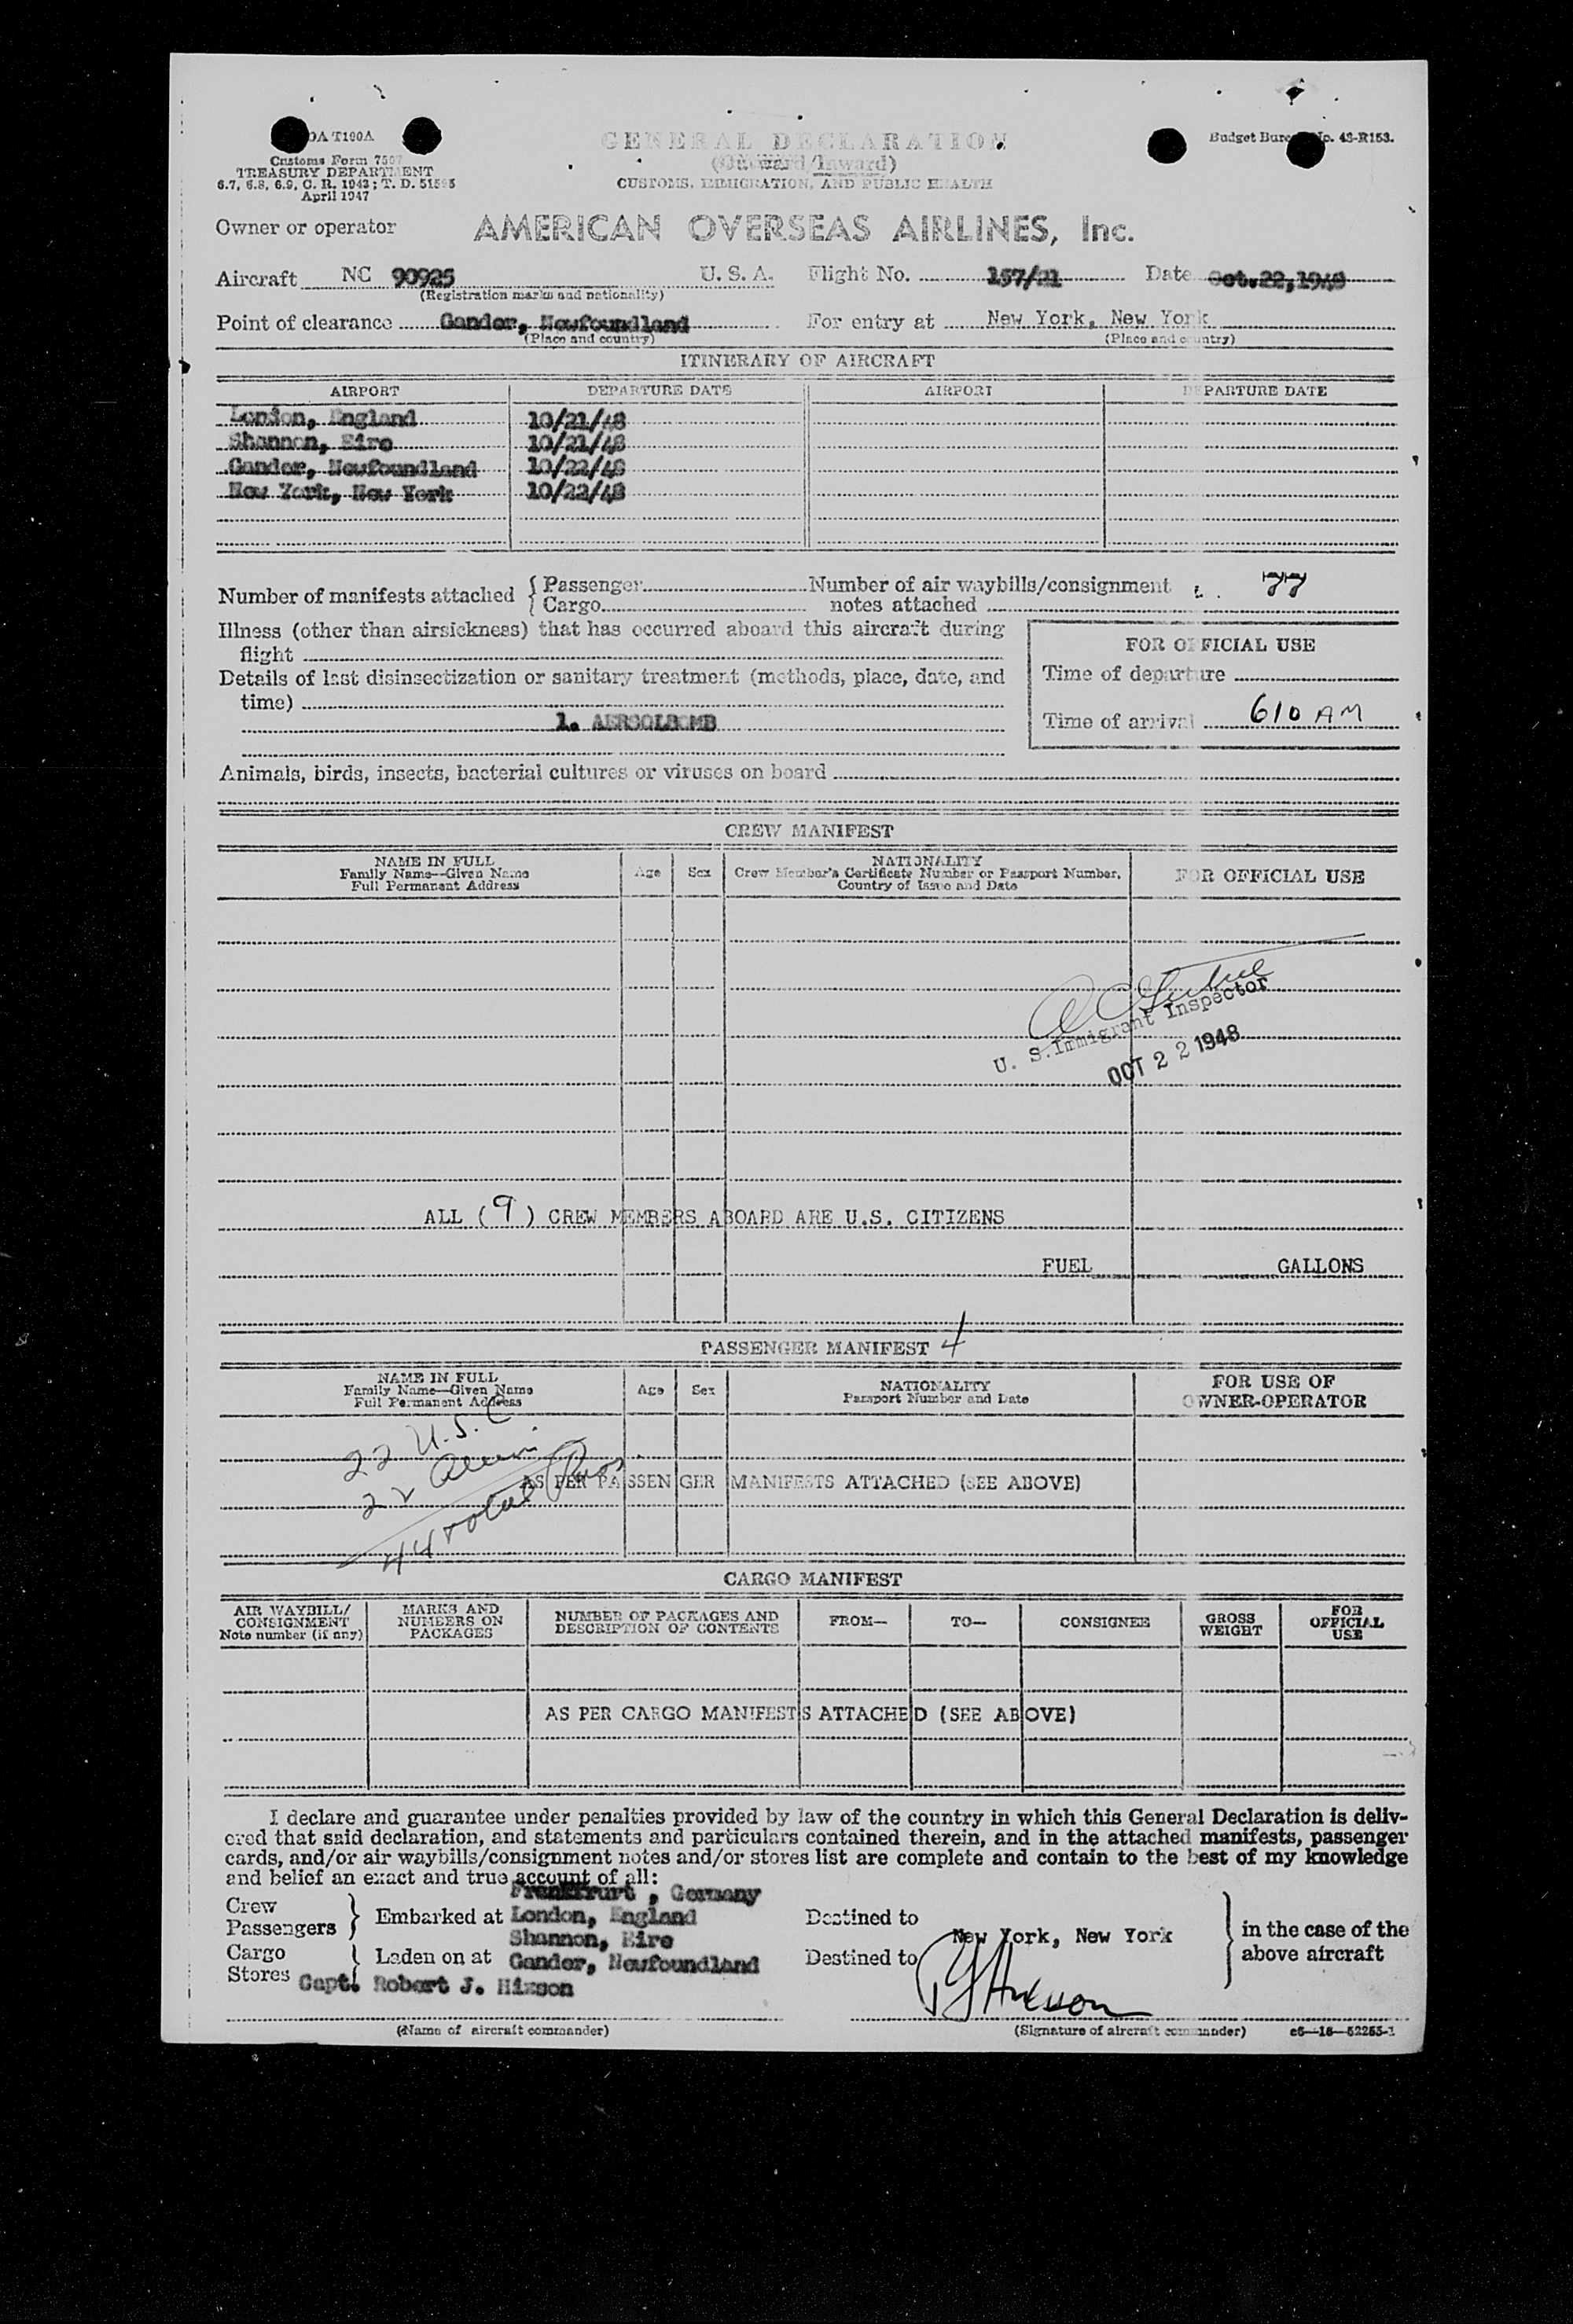 OA T100A
Customs Form 7507
TREASURY DEPARTMENT
6.7, 6.8, 6.9, C. R. 1943; T. D. 51595
April 1947
GENERAL DECLARATION
(Outward/Inward)
CUSTOMS, IMMIGRATION, AND PUBLIC HEALTH
Budget Bureau No. 43-R153.
Owner or operator AMERICAN OVERSEAS AIRLINES, Inc.
Aircraft NC 90925 U. S. A. Flight No. 157/21 Date Oct. 22, 1948
(Registration marks and nationality)
Point of clearance Gander, Newfoundland For entry at New York, New York
(Place and country) (Place and country)
ITINERARY OF AIRCRAFT
AIRPORT DEPARTURE DATE AIRPORT DEPARTURE DATE
London, England 10/21/48
Shannon, Eire 10/21/48
Gander, Newfoundland 10/22/48
New York, New York 10/22/48
Number of manifests attached { Passenger Number of air waybills/consignment 77
{ Cargo notes attached
Illness (other than airsickness) that has occurred aboard this aircraft during
flight
Details of last disinsectization or sanitary treatment (methods, place, date, and
time)
1. AERSOLBOMB
FOR OFFICIAL USE
Time of departure
Time of arrival 610 AM
Animals, birds, insects, bacterial cultures or viruses on board
CREW MANIFEST
NAME IN FULL
Family Name—Given Name
Full Permanent Address
Age Sex
NATIONALITY
Crew Member's Certificate Number or Passport Number,
Country of Issue and Date
FOR OFFICIAL USE
U. S. Immigrant Inspector
OCT 22 1948
ALL (9) CREW MEMBERS ABOARD ARE U.S. CITIZENS
FUEL GALLONS
PASSENGER MANIFEST 4
NAME IN FULL
Family Name—Given Name
Full Permanent Address
Age Sex
NATIONALITY
Passport Number and Date
FOR USE OF
OWNER-OPERATOR
22 U.S.C
22 Alien
44 total Pass
AS PER PASSENGER MANIFESTS ATTACHED (SEE ABOVE)
CARGO MANIFEST
AIR WAYBILL/
CONSIGNMENT
Note number (if any)
MARKS AND
NUMBERS ON
PACKAGES
NUMBER OF PACKAGES AND
DESCRIPTION OF CONTENTS
FROM— TO— CONSIGNEE
GROSS
WEIGHT
FOR
OFFICIAL
USE
AS PER CARGO MANIFESTS ATTACHED (SEE ABOVE)
I declare and guarantee under penalties provided by law of the country in which this General Declaration is deliv-
ered that said declaration, and statements and particulars contained therein, and in the attached manifests, passenger
cards, and/or air waybills/consignment notes and/or stores list are complete and contain to the best of my knowledge
and belief an exact and true account of all:
Frankfrurt , Germany
Crew
Passengers } Embarked at London, England Destined to
Shannon, Eire New York, New York
Cargo
Stores { Laden on at Gander, Newfoundland Destined to
in the case of the
above aircraft
Capt. Robert J. Hixson
(Name of aircraft commander) (Signature of aircraft commander) c6—16—52255-1